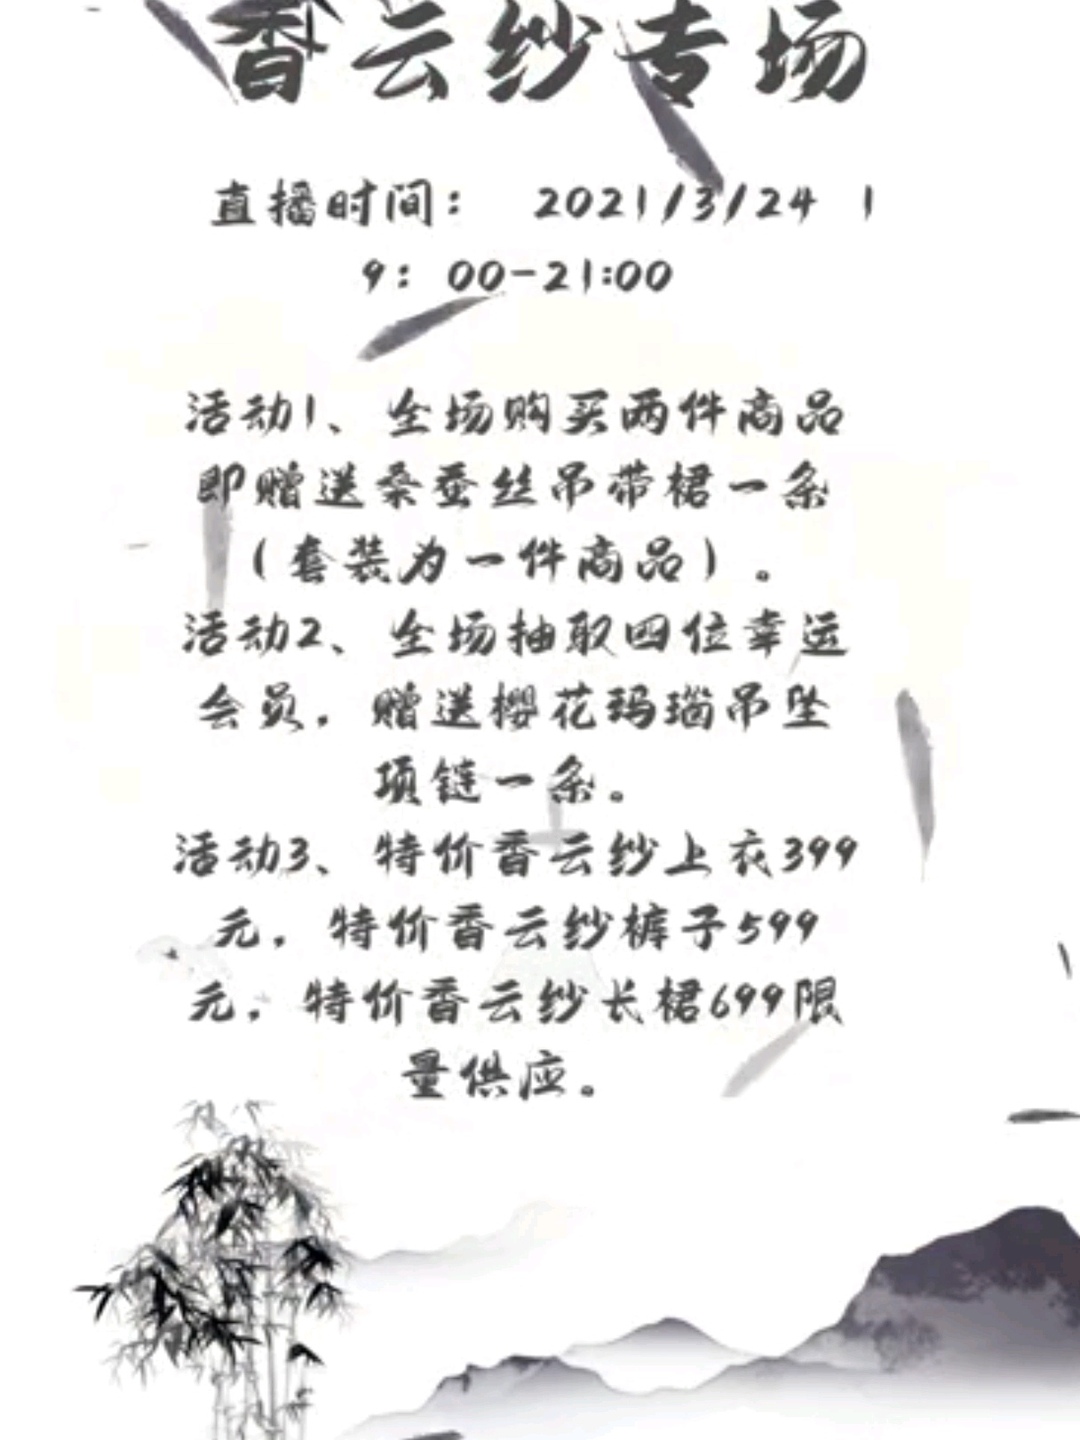 香云纱专场
直播时间： 2021/3/24 1
9：00-21:00
活动1、全场购买两件商品
即赠送桑蚕丝吊带裙一条
（套装为一件商品）。
活动2、全场抽取四位幸运
会员，赠送樱花玛瑙吊坠
项链一条。
活动3、特价香云纱上衣399
元，特价香云纱裤子599
元，特价香云纱长裙699限
量供应。